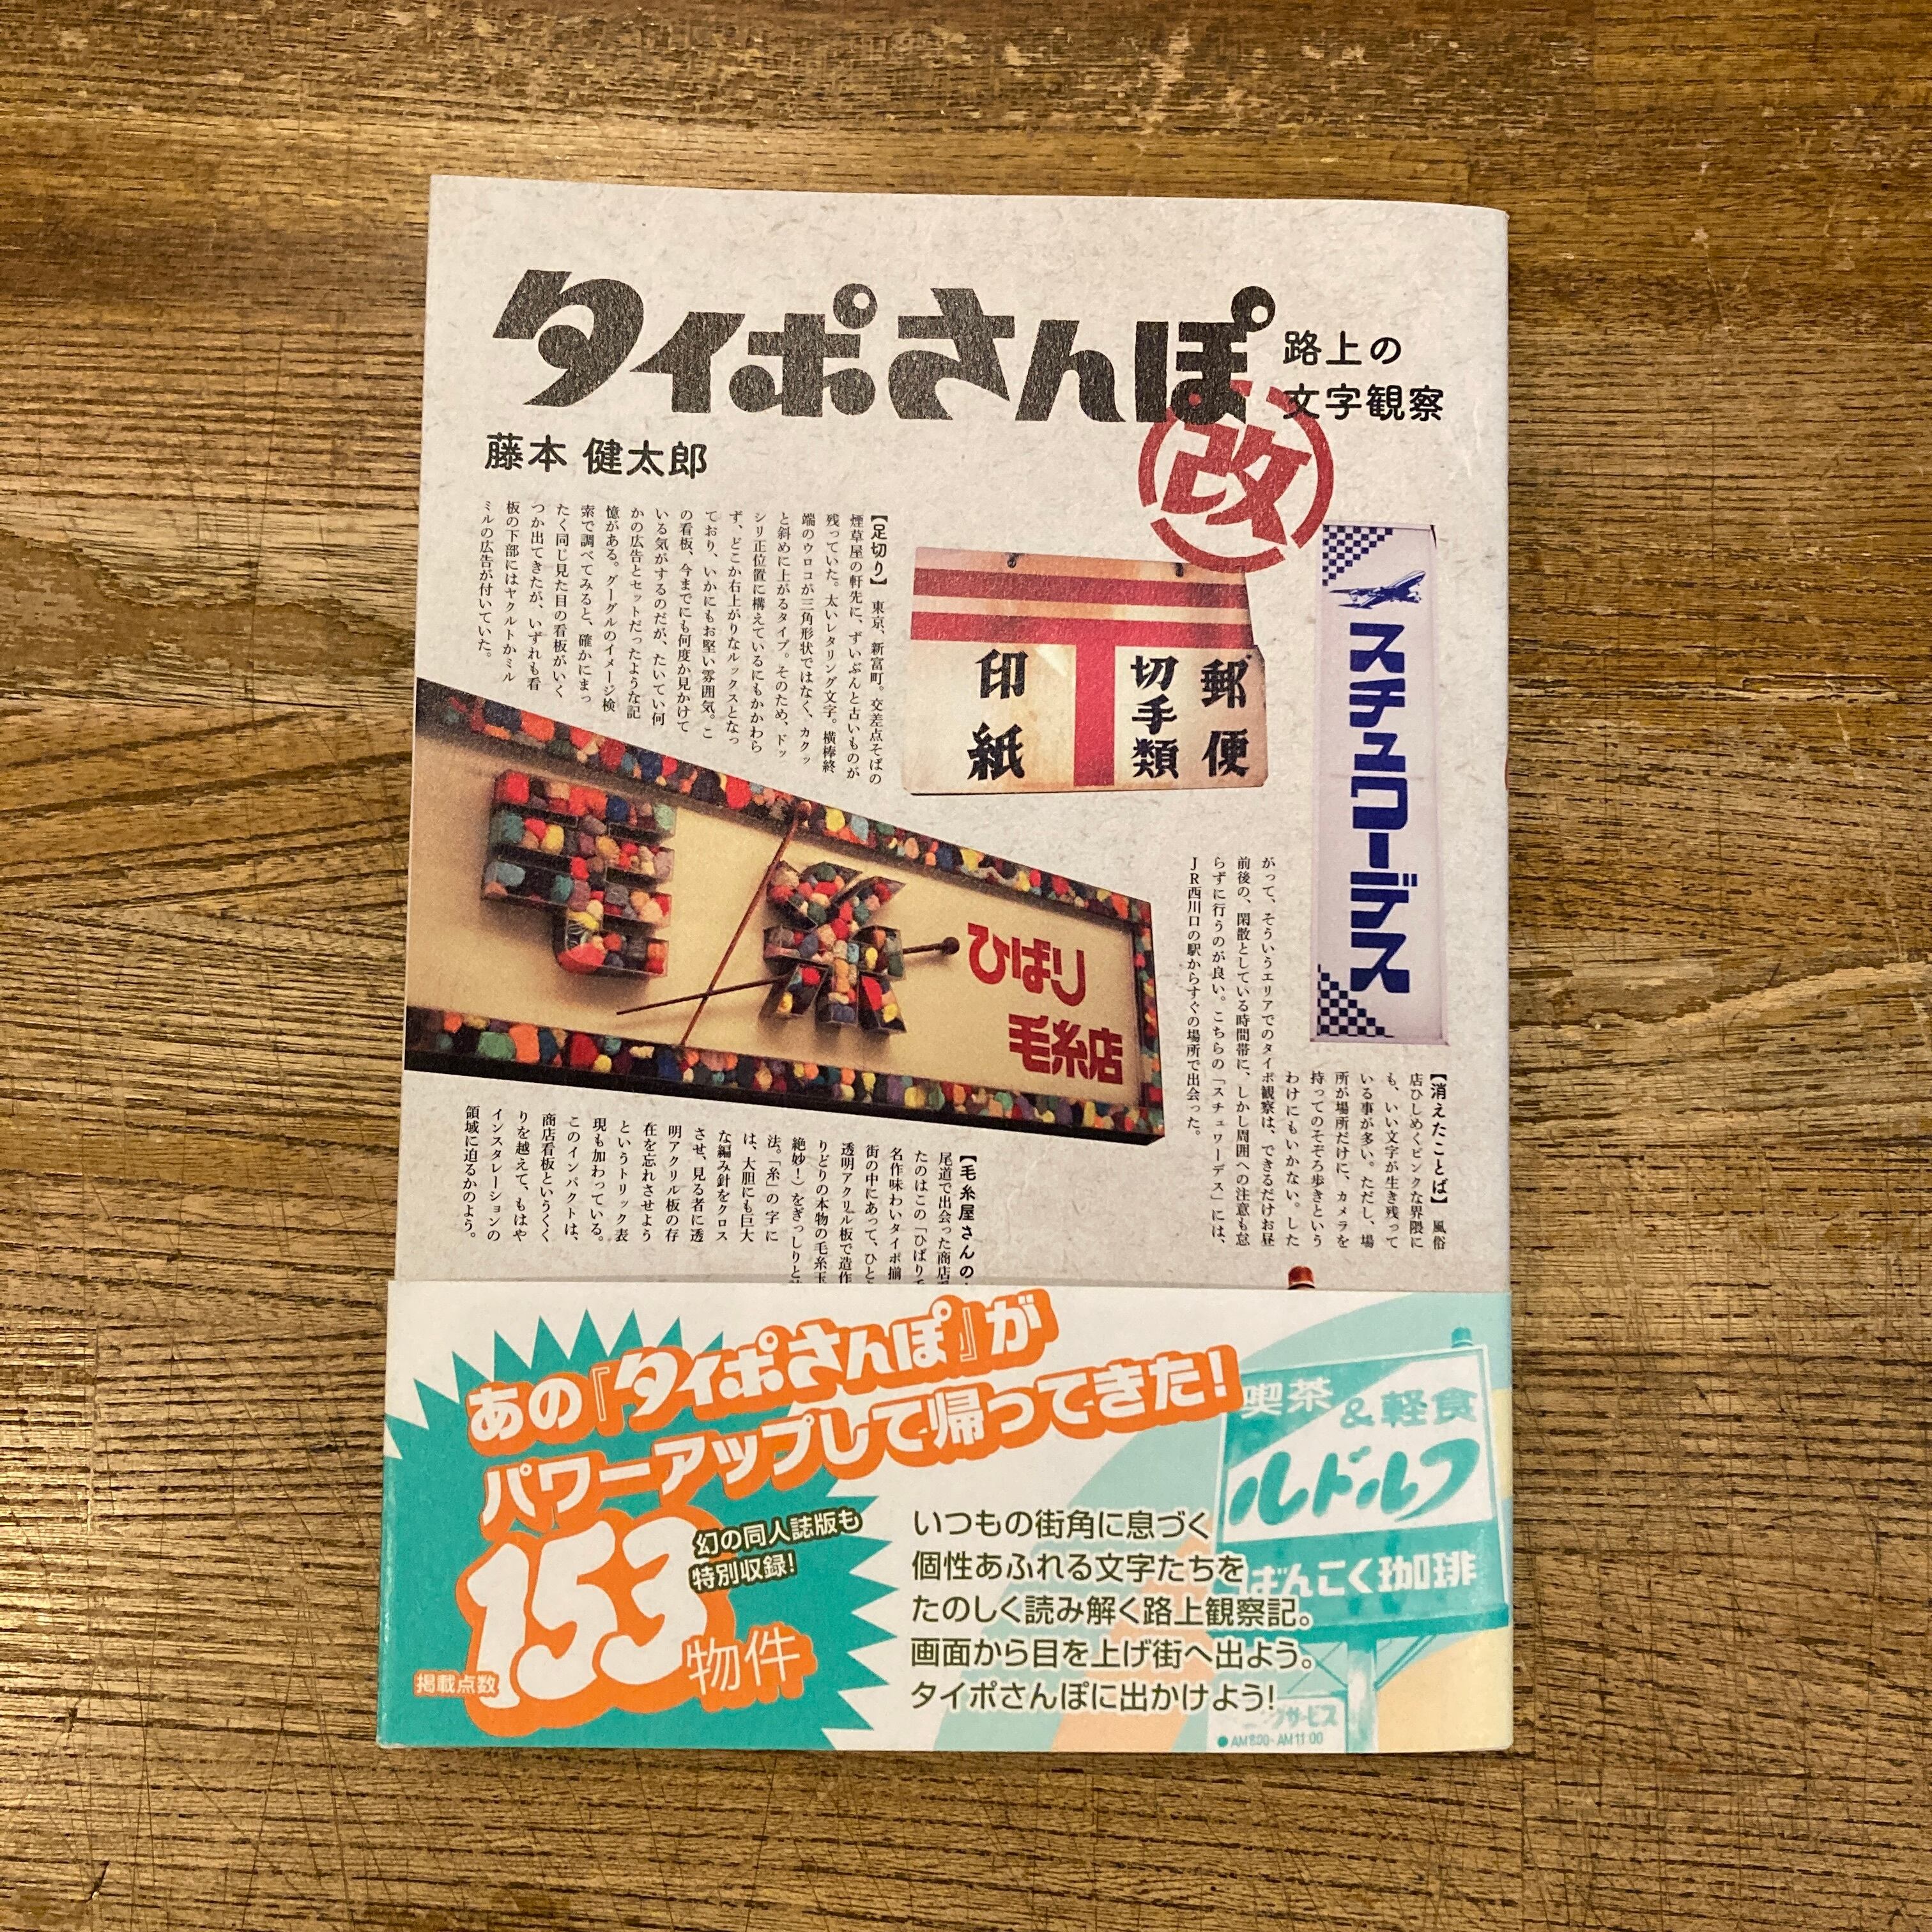 タイポさんぽ
路上の
文字観察
改
藤本 健太郎
【足切り】 東京、新富町。交差点そばの
煙草屋の軒先に、ずいぶんと古いものが
残っていた。太いレタリング文字。横棒終
端のウロコが三角形状ではなく、カクッ
と斜めに上がるタイプ。そのため、ドッ
シリ正位置に構えているにもかかわら
ず、どこか右上がりなルックスとなっ
ており、いかにもお堅い雰囲気。こ
の看板、今までにも何度か見かけて
いる気がするのだが、たいてい何
かの広告とセットだったような記
憶がある。グーグルのイメージ検
索で調べてみると、確かにまっ
たく同じ見た目の看板がいく
つか出てきたが、いずれも看
板の下部にはヤクルトかミル
ミルの広告が付いていた。
郵便
切手類
印紙
スチュワーデス
毛糸
ひばり
毛糸店
【消えたことば】 風俗
店ひしめくピンクな界隈に
も、いい文字が生き残って
いる事が多い。ただし、場
所が場所だけに、カメラを
持ってのぞろ歩きという
わけにもいかない。した
がって、そういうエリアでのタイポ観察は、できるだけお昼
前後の、閑散としている時間帯に、しかし周囲への注意も怠
らずに行うのが良い。こちらの「スチュワーデス」には、
JR西川口の駅からすぐの場所で出会った。
【毛糸屋さんの
尾道で出会った商店
たのはこの「ひばり
名作味わいタイポ揃
街の中にあって、ひと
透明アクリル板で造作
りどりの本物の毛糸玉
絶妙!）をぎっしりと
法。「糸」の字に
は、大胆にも巨大
な編み針をクロス
させ、見る者に透
明アクリル板の存
在を忘れさせよう
というトリック表
現も加わっている。
このインパクトは、
商店看板というくく
りを越えて、もはや
インスタレーションの
領域に迫るかのよう。
あの『タイポさんぽ』が
パワーアップして帰ってきた!
幻の同人誌版も
特別収録!
掲載点数
153物件
いつもの街角に息づく
個性あふれる文字たちを
たのしく読み解く路上観察記。
画面から目を上げ街へ出よう。
タイポさんぽに出かけよう!
喫茶&軽食
ルドルフ
ばんこく珈琲
サービス
●AM8:00~AM11:00